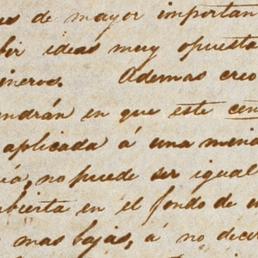 es de mayor importan
bir ideas muy opuesta
ineros. Ademas creo
ndrán en que este cen
aplicada á una mena
ia, no puede ser igual
ubierta en el fondo de u
mas bajas, á no deci